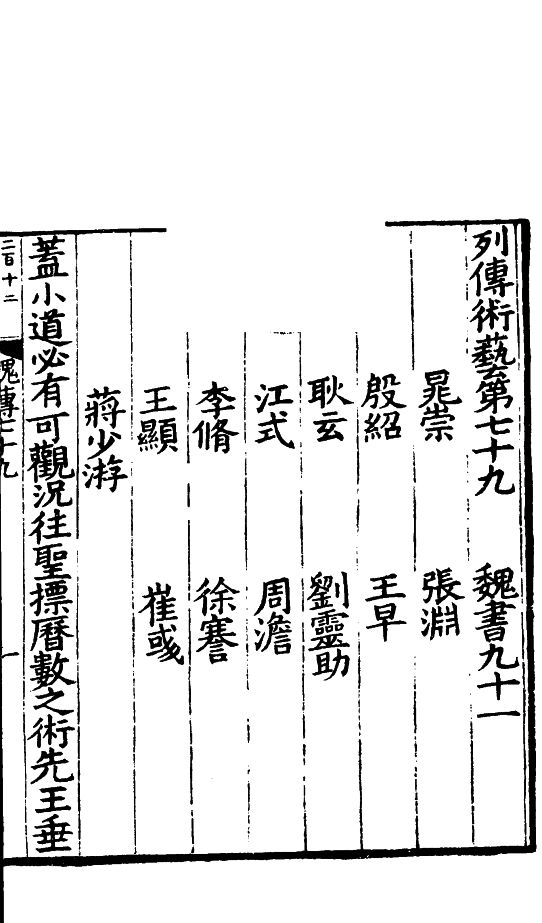 列傳術藝第七十九　魏書九十一
晁崇　張淵
殷紹　王早
耿玄　劉靈助
江式　周澹
李脩　徐謇
王顯　崔彧
蔣少游
蓋小道必有可觀況往聖摽曆數之術先王垂
二百十二　魏傳七十九　一